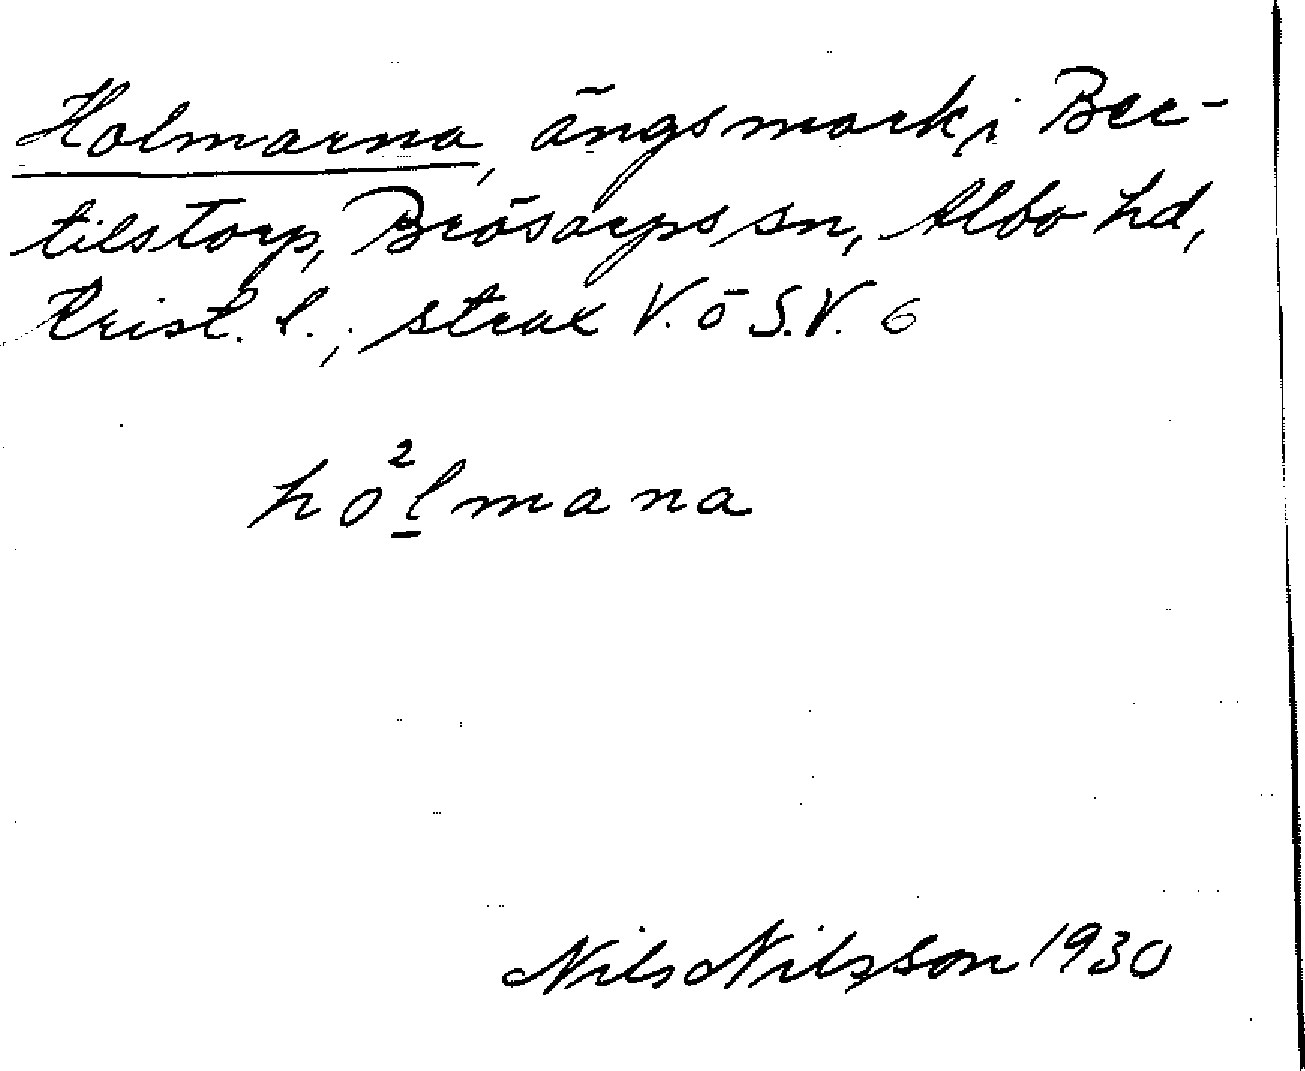 Holmarna, ängsmark i Ber-
tilstorp, Brösarps sn, Albo hd,
Krist. l.; strax V. ö S.V. 6
ho²lmana
Nils Nilsson 1930